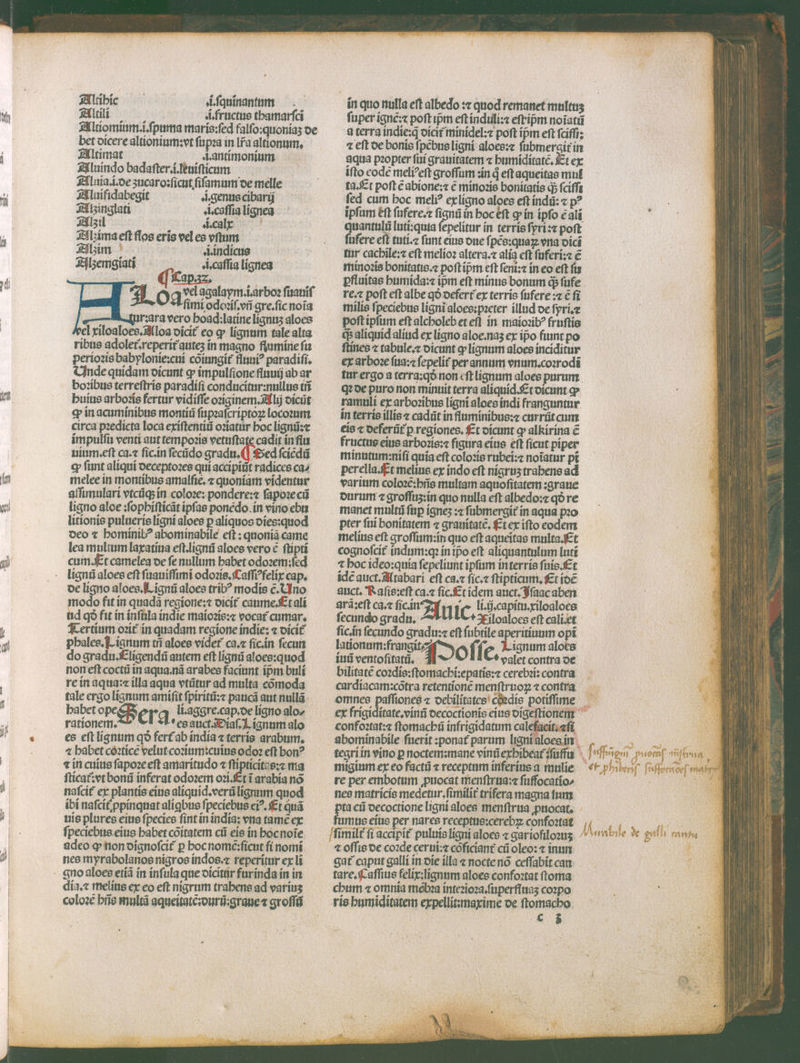 Altihic .i.squinantum
Altili .i.fructus thamarisci
Altiomium.i.spuma maris:sed falso:quoniaz de
bet dicere altionium:vt supra in lr̃a altionum.
Altimat .i.antimonium
Aluindo badaster.i.leuisticum
Aluia.i.de zucaro:sicut sisamum de melle
Aluisidabegit .i.genus cibarij
Alzinglati .i.cassia lignea
Alzil .i.calx
Alzima est flos eris vel es vstum
Alzim .i.indicus
Alzemgiati .i.cassia lignea
¶ Cap.32.
ALoa vel agalaym.i.arbor suauis
simi odoris.vñ gre.sic noĩa
tur:ara vero hoad:latine lignuz aloes
vel xiloaloes.Aloa dicit̃ eo ꝙ lignum tale alta
ribus adolet̃.reperit̃ autez in magno flumine su
perioris babylonie:cui cõiungit̃ fluuiꝰ paradisi.
Unde quidam dicunt ꝙ impulsione fluuij ab ar
boribus terrestris paradisi conducitur:nullus tñ
huius arboris fertur vidisse originem.Alij dicũt
ꝙ in acuminibus montiũ suprascriptoꝝ locorum
circa predicta loca existentiũ oriatur hoc lignũ:⁊
impulsu venti aut temporis vetustate cadit in flu
uium.est ca.⁊ sic.in secũdo gradu.¶ Sed sciẽdũ
ꝙ sunt aliqui deceptores qui accipiũt radices ca
melee in montibus amalfie.⁊ quoniam videntur
assimulari vtcũqꝫ in colore: pondere:⁊ sapore cũ
ligno aloe :sophisticãt ipsas ponẽdo in vino ebu
litionis pulueris ligni aloes p aliquos dies:quod
deo ⁊ hominibꝰ abominabile est : quoniã came
lea multum laxatiua est.lignũ aloes vero ẽ stipti
cum.Et camelea de se nullum habet odorem:sed
lignũ aloes est suauissimi odoris.Cassiꝰ felix cap.
de ligno aloes.Lignũ aloes tribꝰ modis ẽ.Uno
modo fit in quadã regione:⁊ dicit̃ caume.Et ali
ud qõ fit in insula indie maioris:⁊ vocat̃ cumar.
Tertium orit̃ in quadam regione indie: ⁊ dicit̃
phales.Lignum tñ aloes videt̃ ca.⁊ sic.in secun
do gradu.Eligendũ autem est lignũ aloes:quod
non est coctũ in aqua.nã arabes faciunt ip̃m buli
re in aqua:⁊ illa aqua vtũtur ad multa cõmoda
tale ergo lignum amisit spiritũ:⁊ paucã aut nullã
habet ope
rationem. Sera. li.aggre.cap.de ligno alo
es auct.Dias.Lignum alo
es est lignum qõ fert̃ ab india ⁊ terris arabum.
⁊ habet corticẽ velut corium:cuius odor est bonꝰ
⁊ in cuius sapore est amaritudo ⁊ stipticitas:⁊ ma
sticat̃:vt bonũ inferat odorem ori.Et ĩ arabia nõ
nascit̃ ex plantis eius aliquid.verũ lignum quod
ibi nascit̃,ppinquat aliqbus speciebus eiꝰ.Et quã
uis plures eius species sint in india: vna tamẽ ex
speciebus eius habet cõitatem cũ eis in hoc noĩe
adeo ꝙ non dignoscit̃ p hoc nomẽ:sicut si nomi
nes myrabolanos nigros indos.⁊ reperitur ex li
gno aloes etiã in insula que dicitur furinda in in
dia.⁊ melius ex eo est nigrum trahens ad variuz
colorẽ hñs multã aqueitatẽ:durũ:graue ⁊ grossũ
in quo nulla est albedo :⁊ quod remanet multuz
super ignẽ:⁊ post ip̃m est induli:⁊ est ip̃m noĩatũ
a terra indie:q̃ dicit̃ minidel:⁊ post ip̃m est scifsi:
⁊ est de bonis spẽbus ligni aloes:⁊ submergit̃ in
aqua propter sui grauitatem ⁊ humiditatẽ.Et ex
isto codẽ meliꝰ est grossum :in q̃ est aqueitas mul
ta.Et post ẽ abione:⁊ ẽ minoris bonitatis q̃ꝫ scifsi
sed cum hoc meliꝰ ex ligno aloes est indũ: ⁊ pꝰ
ipsum est sufere.⁊ signũ in hoc est ꝙ in ipso ẽ ali
quantulũ luti:quia sepelitur in terris syri:⁊ post
sufere est tuti.⁊ sunt eius due spẽs:quaꝝ vna dici
tur cachile:⁊ est melior altera.⁊ alia est suferi:⁊ ẽ
minoris bonitatis.⁊ post ip̃m est seni:⁊ in eo est su
pfluitas humida:⁊ ip̃m est minus bonum q̃ꝫ sufe
re.⁊ post est albe qõ defert̃ ex terris sufere :⁊ ẽ si
milis speciebus ligni aloes:preter illud de syri.⁊
post ipsum est alcholeb et est in maioribꝰ frustis
q̃ꝫ aliquid aliud ex ligno aloe.naz ex ip̃o siunt po
stines ⁊ tabule.⁊ dicunt ꝙ lignum aloes inciditur
ex arbore sua:⁊ sepelit̃ per annum vnum.corrodi
tur ergo a terra:qõ non est lignum aloes purum
qz de puro non minuit terra aliquid.Et dicunt ꝙ
ramuli ex arboribus ligni aloes indi franguntur
in terris illis ⁊ cadũt in fluminibus:⁊ currũt cum
eis ⁊ deferũt̃ p regiones. Et dicunt ꝙ alkirina ẽ
fructus eius arboris:⁊ figura eius est sicut piper
minutum:nisi quia est coloris rubei:⁊ noĩatur pi
perella.Et melius ex indo est nigruz trahens ad
varium colorẽ:hñs multam aquositatem :graue
durum ⁊ grossuz:in quo nulla est albedo:⁊ qõ re
manet multũ sup ignez :⁊ submergit̃ in aqua pro
pter sui bonitatem ⁊ grauitatẽ. Et ex isto eodem
melius est grossum:in quo est aqueitas multa.Et
cognoscit̃ indum:qꝛ in ip̃o est aliquantulum luti
⁊ hoc ideo:quia sepeliunt ipsum in terris suis.Et
idẽ auct.Altabari est ca.⁊ sic.⁊ stipticum. Et idẽ
auct. Rasis:est ca.⁊ sic.Et idem auct.Isaac aben
arã:est ca.⁊ sic.in
secundo gradu. Auic. li.ij.capitu.xiloaloes
Xiloaloes est cali.et
sic.in secundo gradu:⁊ est subtile aperitiuum opi
lationum:frangit̃
iuũ ventositatũ. Posse. Lignum aloes
valet contra de
bilitatẽ cordis:stomachi:epatis:⁊ cerebri: contra
cardiacam:cõtra retentionẽ menstruoꝝ ⁊ contra
omnes passiones ⁊ debilitates cordis potissime
ex frigiditate.vinũ decoctionis eius digestionem
confortat:⁊ stomachũ infrigidatum calefacit.⁊ si
abominabile fuerit :ponat̃ parum ligni aloes in
tegri in vino p noctem:mane vinũ exhibeat̃ :suffu
migium ex eo factũ ⁊ receptum inferius a mulie
re per embotum ,puocat menstrua:⁊ suffocatio
nes matricis medetur.similit̃ trifera magna sum
pta cũ decoctione ligni aloes menstrua ,puocat.
fumus eius per nares receptus:cerebꝝ confortat
similit̃ si accipit̃ puluis ligni aloes ⁊ gariofiloruz
⁊ ossis de corde cerui:⁊ cõficiant̃ cũ oleo: ⁊ inun
gat̃ caput galli in die illa ⁊ nocte nõ cessabit can
tare.Cassius felix:lignum aloes confortat stoma
chum ⁊ omnia mẽbra interiora.superfluaz corpo
ris humiditatem expellit:maxime de stomacho
c 3
Mirabile de galli cantu